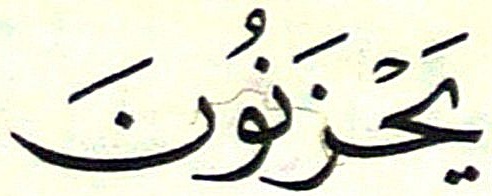 يَحْزَنُونَ